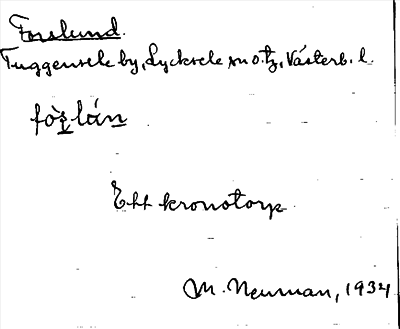 Forslund.
Tuggensele by, Lycksele sn o. tg, Västerb. l.
fòṣlán
Ett kronotorp
M. Neuman, 1934